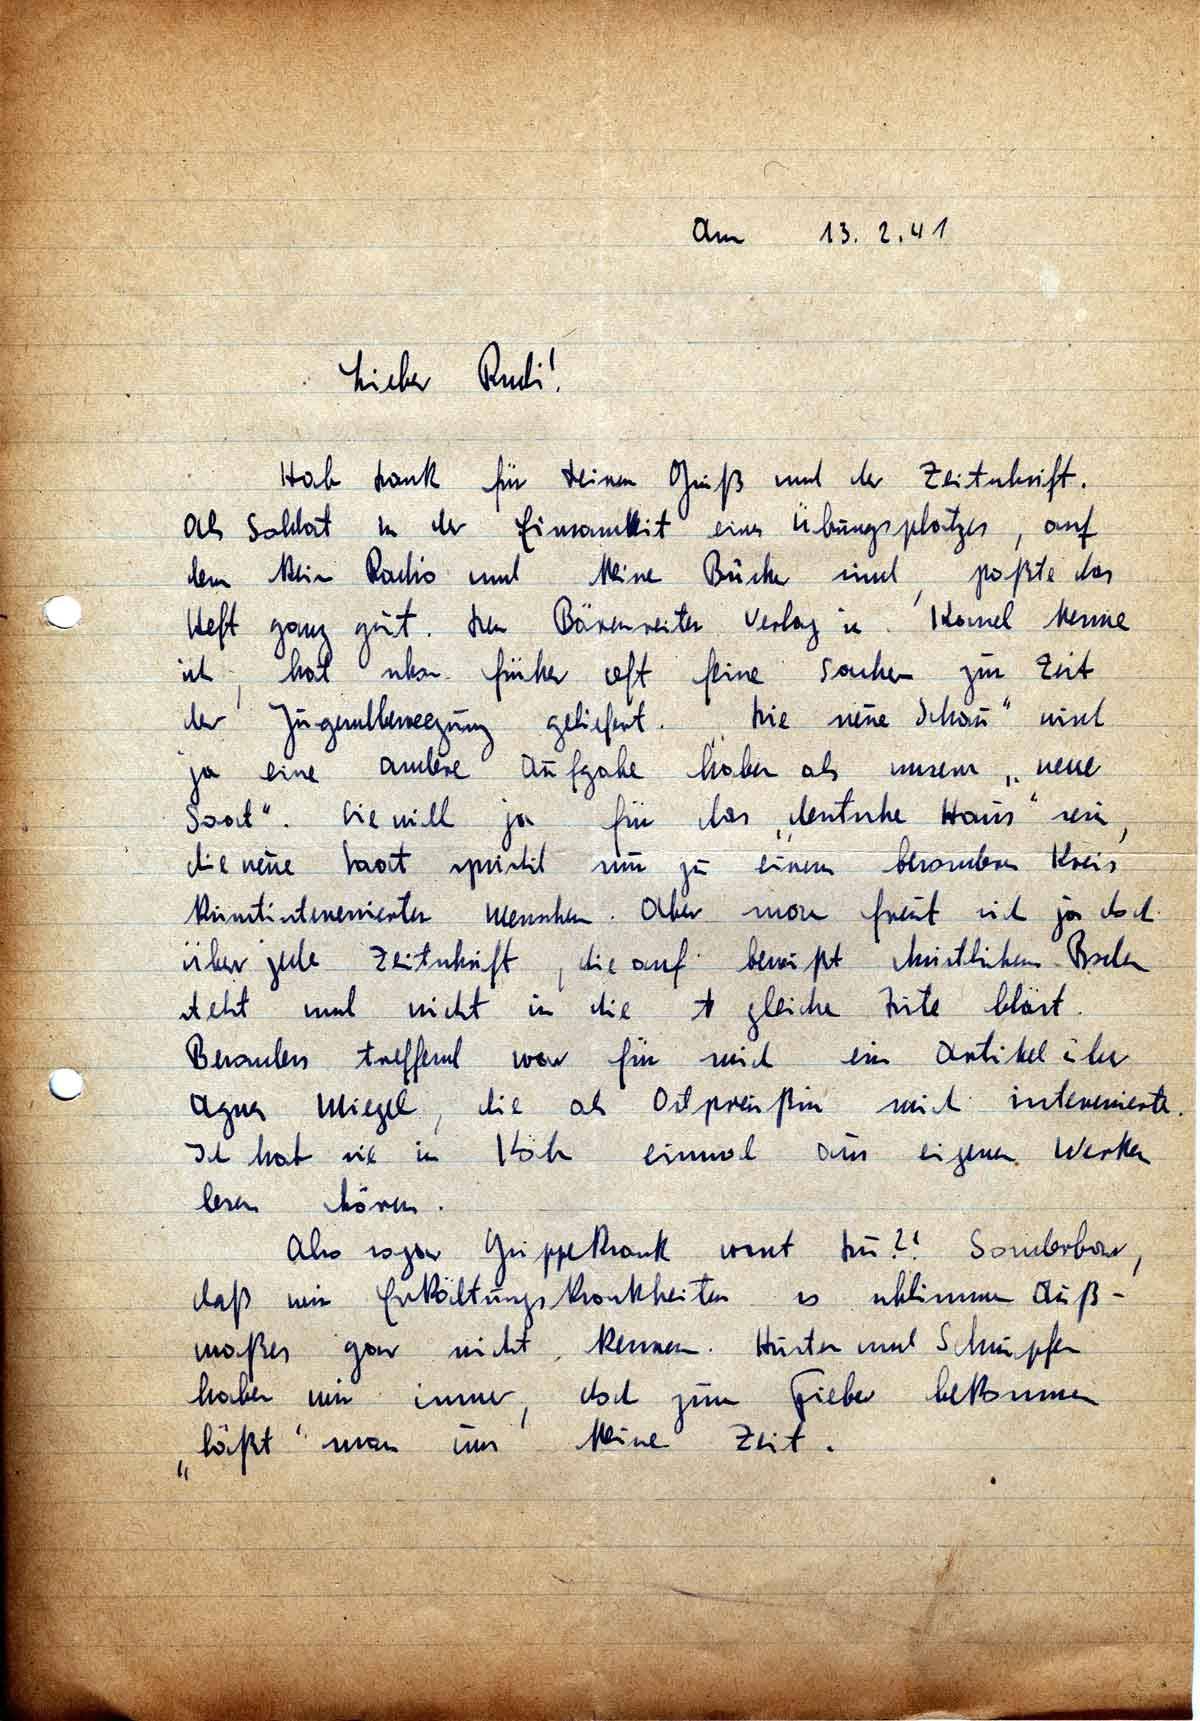 Am 13.2.41
Lieber Rudi!
Hab Dank für Deinen Gruß und der Zeitschrift.
Als Soldat in der Einsamkeit eines Übungsplatzes, auf
dem kein Radio und keine Bücher sind, paßte das
Heft ganz gut. Den Bärenreiter Verlag in Kassel kenne
ich, hat schon früher oft feine Sachen zur Zeit
der Jugendbewegung geliefert. „Die neue Schau“ wird
ja eine andere Aufgabe haben als unsere „neue
Saat“. Sie will ja für das „deutsche Haus“ sein,
die neue Saat spricht nur zu einem besonderen Kreis
kunstinteressierter Menschen. Aber man freut sich ja doch
über jede Zeitschrift, die auf bewußt christlichem Boden
steht und nicht in die gleiche Tüte bläst.
Besonders treffend war für mich ein Artikel über
Agnes Miegel, die als Ostpreußin mich interessierte.
Ich hab sie in Köln einmal aus eigenen Werken
lesen hören.
Also sogar Grippekrank warst Du?! Sonderbar,
daß wir Erkältungskrankheiten so schlimmen Auß-
maßes gar nicht kennen. Husten und Schnupfen
haben wir immer, doch zum Fieber bekommen
„läßt“ man uns keine Zeit.